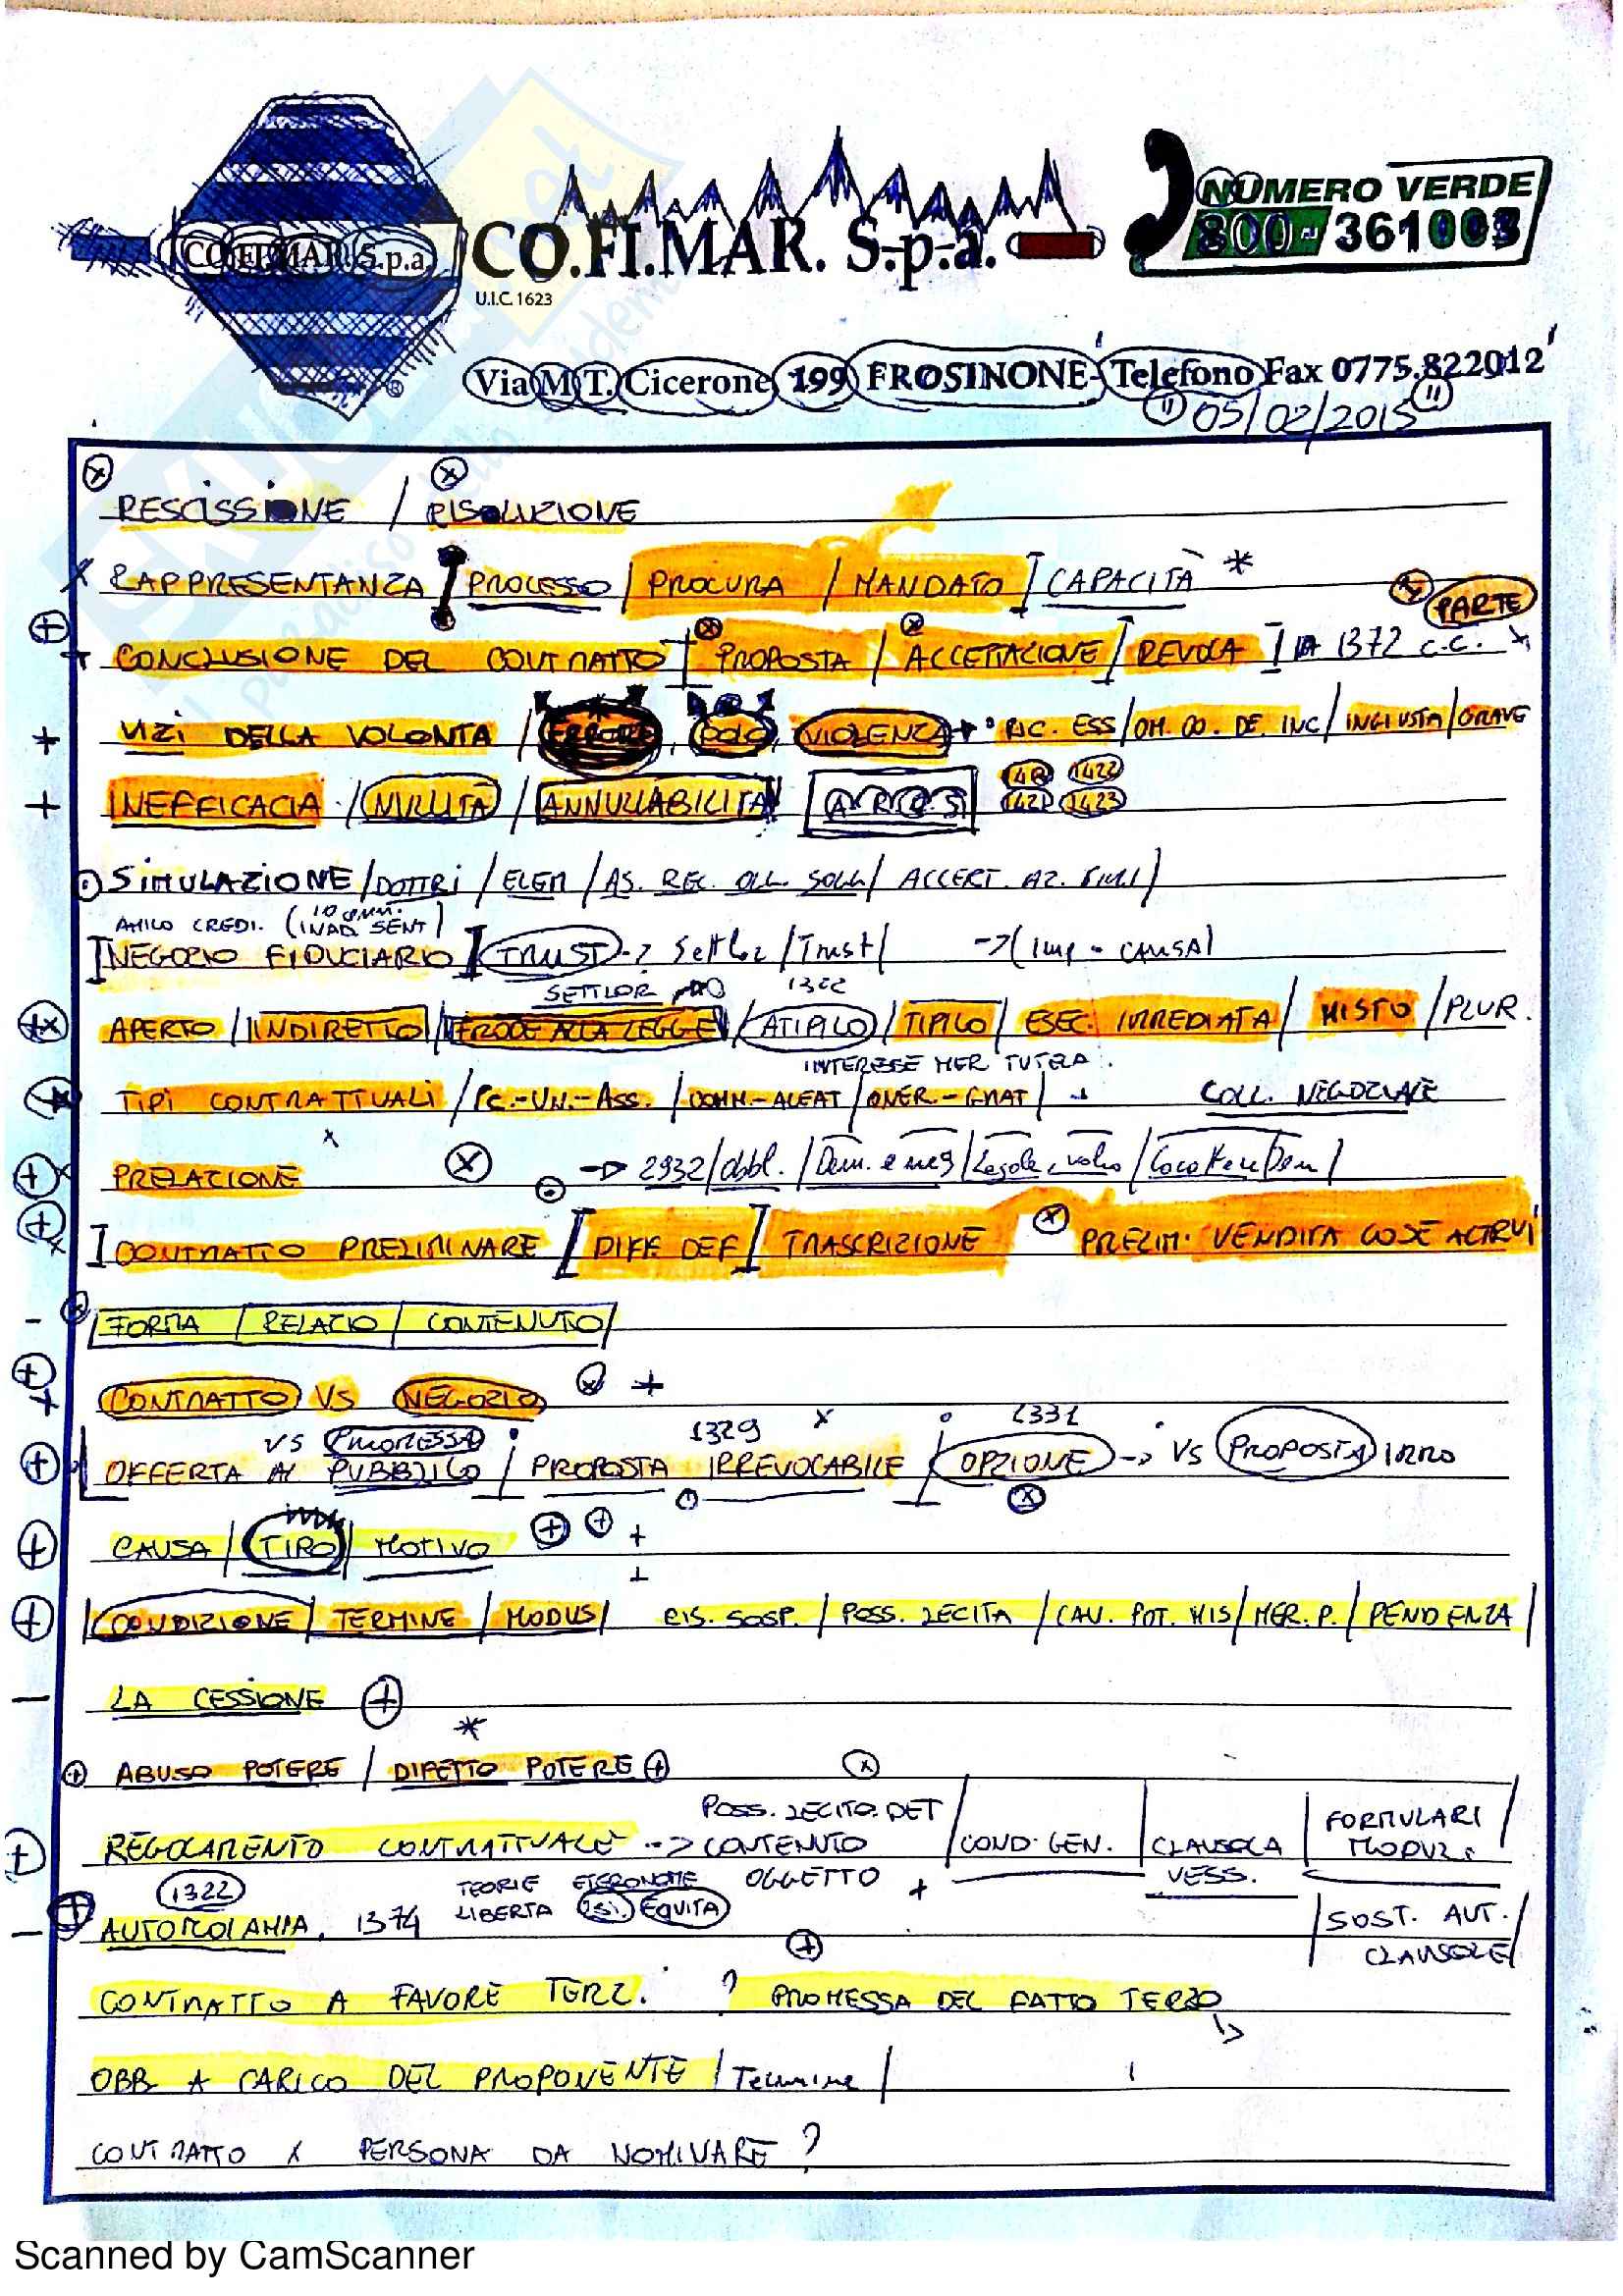 NUMERO VERDE
800-361003
CO.FI.MAR. S.p.a.
CO.FI.MAR. S.p.a.
U.I.C. 1623
Via M.T. Cicerone 199 FROSINONE - Telefono Fax 0775.822012
05/02/2015
RESCISSIONE / RISOLUZIONE
RAPPRESENTANZA / PROCESSO / PROCURA / MANDATO / CAPACITÀ *
PARTE
CONCLUSIONE DEL CONTRATTO / PROPOSTA / ACCETTAZIONE / REVOCA 1372 c.c.
VIZI DELLA VOLONTA / ERRORE, DOLO, VIOLENZA + RIC. ESS / OM. CO. DE. INC / INGIUSTA / GRAVE
1422
INEFFICACIA / NULLITÀ / ANNULLABILITÀ 1421 1423
SIMULAZIONE / DOTTRI / ELEM / AS. REL.
AMICO CREDI.
NEGOZIO FIDUCIARIO TRUST -> Settlor / Trust / -> ( imp = CAUSA )
SETTLOR 1322
APERTO / INDIRETTO / FRODE ALLA LEGGE / ATIPICO / TIPICO / ESEC. IMMEDIATA / MISTO / PLUR.
INTERESSE MER TUTELA.
TIPI CONTRATTUALI / PL.-UN.-ASS. / COMM.-ALEAT / ONER.-GRAT / COLL. NEGOZIALE
PRELAZIONE -> 2932 / obbl. / Den. e neg / Legale, volon /
CONTRATTO PRELIMINARE / DIFF DEF / TRASCRIZIONE PRELIM. VENDITA COSE ALTRUI
FORMA / RELATIO / CONTENUTO /
CONTRATTO VS NEGOZIO
VS PROMESSA 1329 1331
OFFERTA AL PUBBLICO / PROPOSTA IRREVOCABILE / OPZIONE -> VS PROPOSTA IRRO
CAUSA / TIPO / MOTIVO
CONDIZIONE / TERMINE / MODUS / RIS. SOSP. / POSS. LECITA / CAU. POT. MIS / MER. P. / PENDENZA /
LA CESSIONE
ABUSO POTERE / DIFETTO POTERE
POSS. LECITO. DET FORMULARI
REGOLAMENTO CONTRATTUALE --> CONTENUTO / COND. GEN. / CLAUSOLA / MODULI
1322 TEORIE ETERONOME OGGETTO + VESS.
AUTONOMIA, 1374 LIBERTA EQUITA SOST. AUT.
CLAUSOLE
CONTRATTO A FAVORE TERZ. ? PROMESSA DEL FATTO TERZO
OBB A CARICO DEL PROPONENTE / Termine /
CONTRATTO X PERSONA DA NOMINARE ?
Scanned by CamScanner